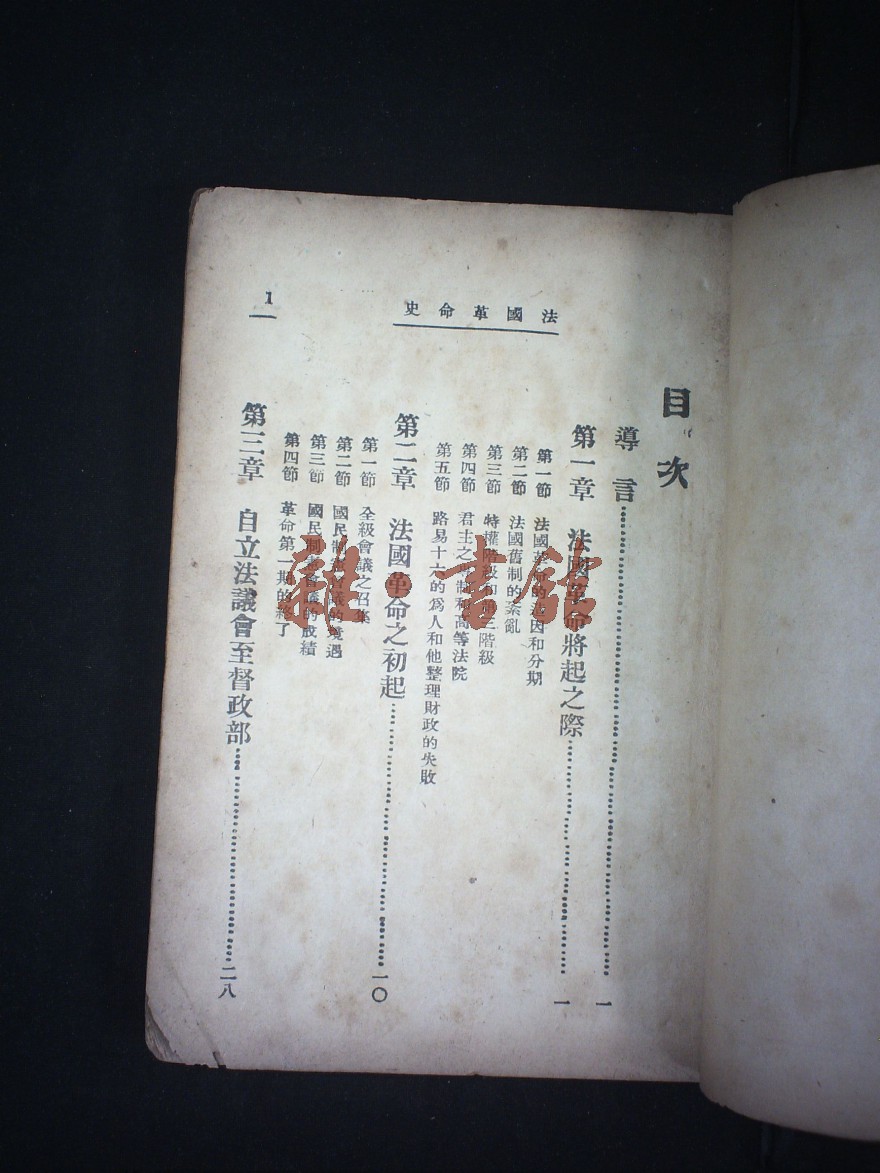 法國革命史
1
目次
導言 一
第一章 法國革命將起之際 一
第一節 法國革命的 因和分期
第二節 法國舊制的紊亂
第三節 特權階級 第三階級
第四節 君主之 制和高等法院
第五節 路易十六的爲人和他整理財政的失敗
第二章 法國革命之初起 一〇
第一節 全級會議之召集
第二節 國民制憲會議的 遇
第三節 國民制憲會議的成績
第四節 革命第一期的終了
第三章 自立法議會至督政部 二八
雜·書館